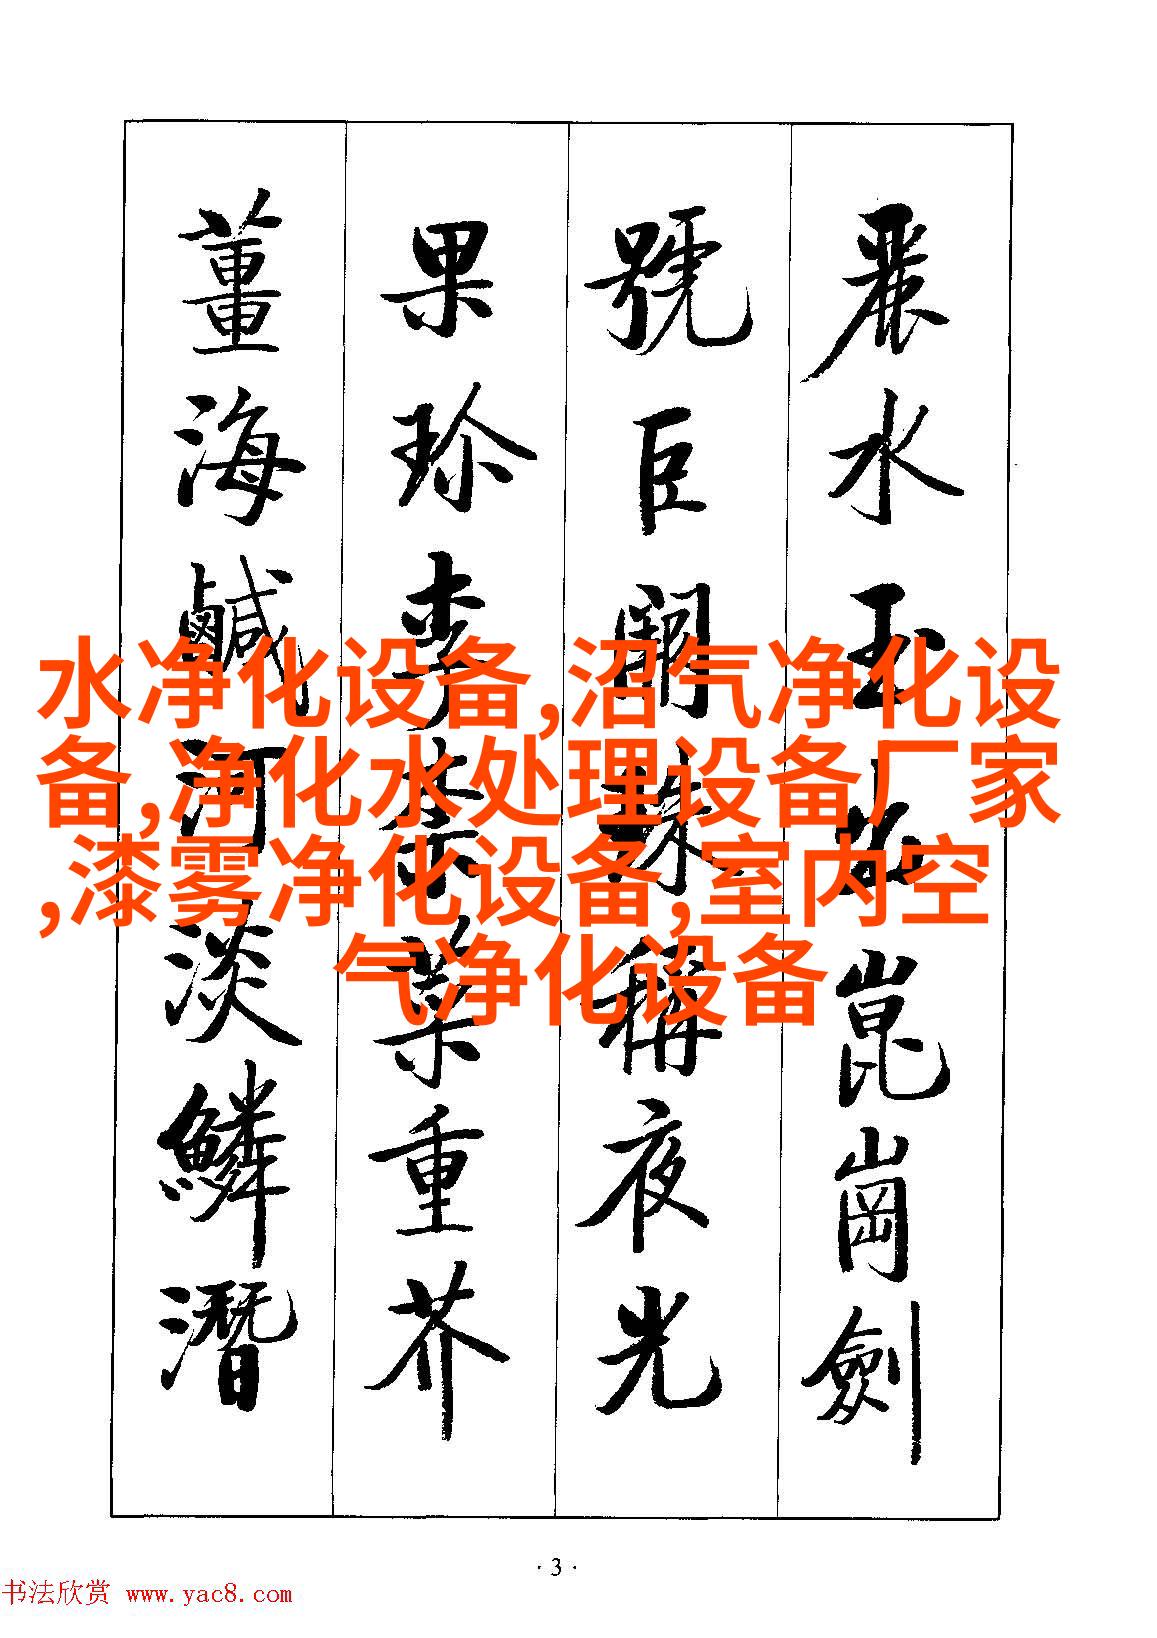 麗水玉出崑崗劍
號巨闕珠稱夜光
果珍李柰菜重芥
薑海鹹河淡鱗潛
水净化设备,沼气净化设
备,净化水处理设备厂家
,漆雾净化设备,室内空
气净化设备
· 3 ·
书法欣赏 www.yac8.com